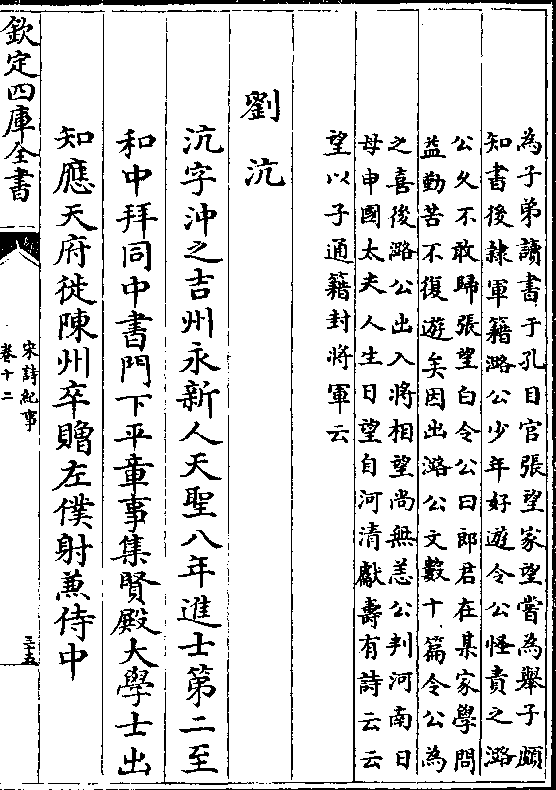 為子弟讀書于孔目官張望家望嘗為舉子頗
知書後隷軍籍潞公少年好遊令公怪責之潞
公久不敢歸張望白令公曰郎君在某家學問
益勤苦不復遊矣因出潞公文數十篇令公為
之喜後潞公出入將相望尚無恙公判河南日
母申國太夫人生日望自河清獻壽有詩云云
望以子通籍封將軍云
劉沆
沆字沖之吉州永新人天聖八年進士第二至
和中拜同中書門下平章事集賢殿大學士出
知應天府徙陳州卒贈左僕射兼侍中
欽定四庫全書
宋詩紀事
卷十二
三十五